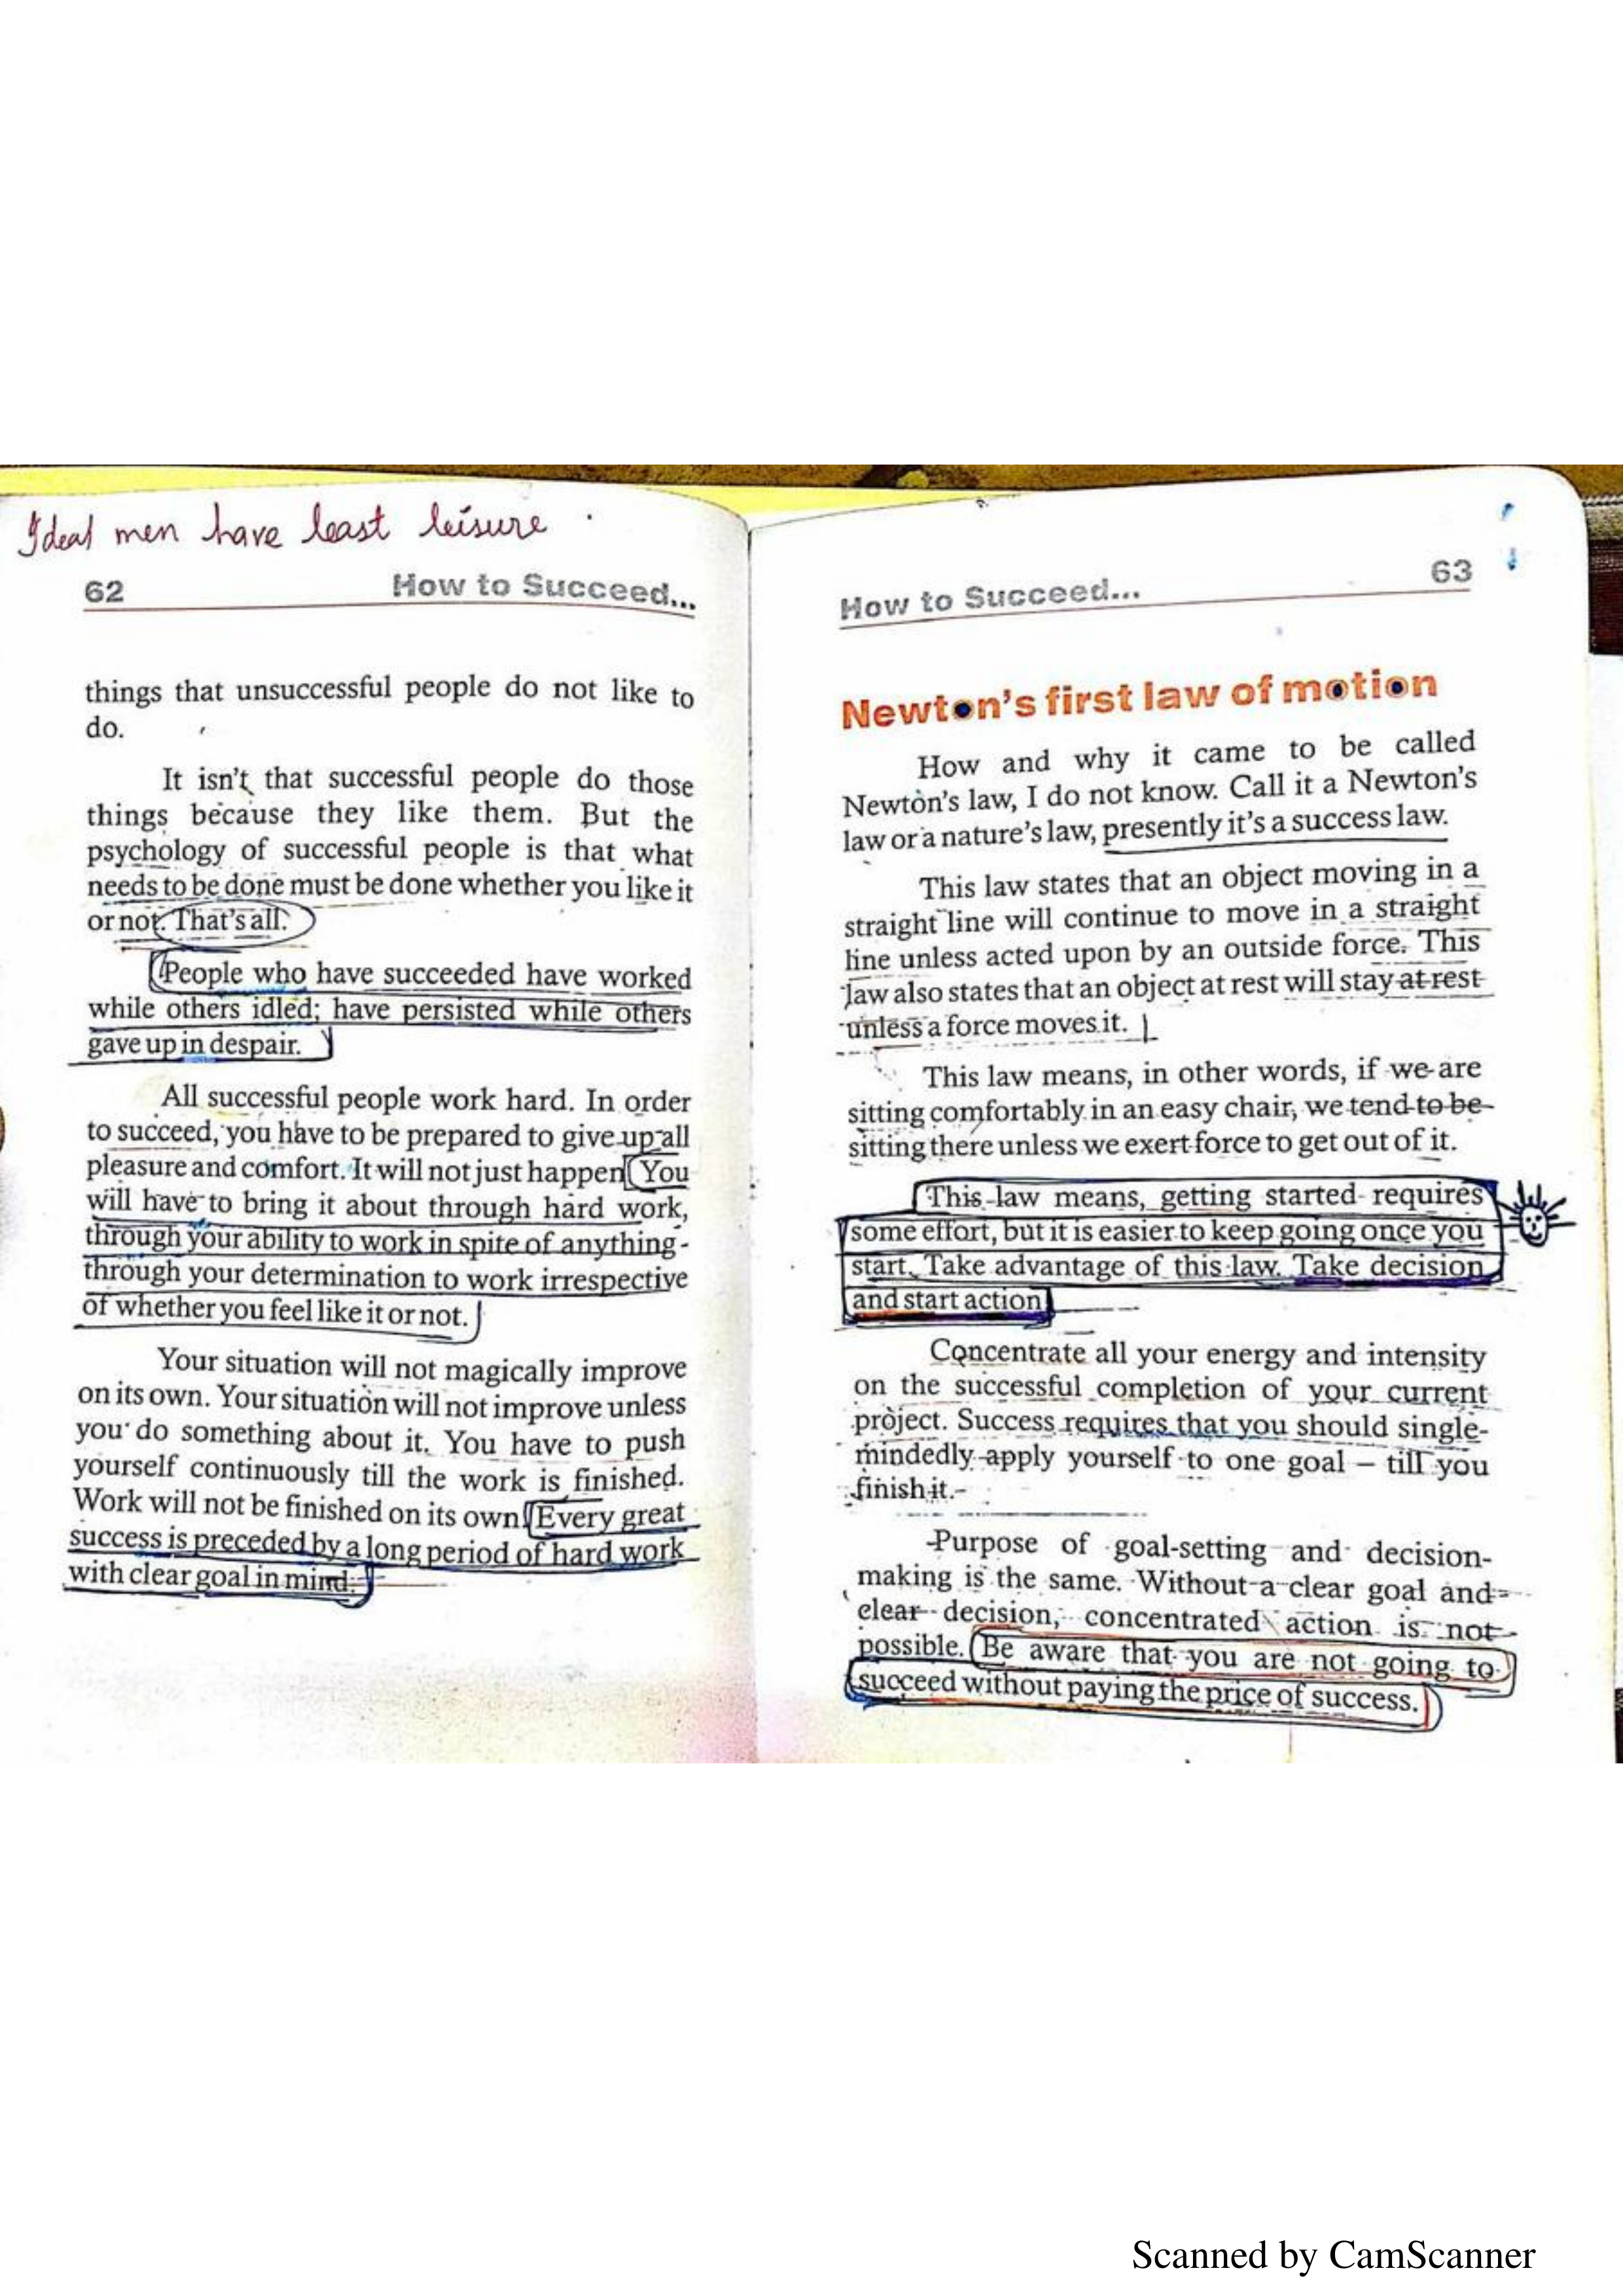 Ideal men have least leisure.
62 How to Succeed...
things that unsuccessful people do not like to
do.
It isn't that successful people do those
things because they like them. But the
psychology of successful people is that what
needs to be done must be done whether you like it
or not. That's all.
People who have succeeded have worked
while others idled; have persisted while others
gave up in despair.
All successful people work hard. In order
to succeed, you have to be prepared to give up all
pleasure and comfort. It will not just happen. You
will have to bring it about through hard work,
through your ability to work in spite of anything-
through your determination to work irrespective
of whether you feel like it or not.
Your situation will not magically improve
on its own. Your situation will not improve unless
you do something about it. You have to push
yourself continuously till the work is finished.
Work will not be finished on its own. Every great
success is preceded by a long period of hard work
with clear goal in mind.
How to Succeed... 63
Newton's first law of motion
How and why it came to be called
Newton's law, I do not know. Call it a Newton's
law or a nature's law, presently it's a success law.
This law states that an object moving in a
straight line will continue to move in a straight
line unless acted upon by an outside force. This
law also states that an object at rest will stay at rest
unless a force moves it.
This law means, in other words, if we are
sitting comfortably in an easy chair, we tend to be
sitting there unless we exert force to get out of it.
This law means, getting started requires
some effort, but it is easier to keep going once you
start. Take advantage of this law. Take decision
and start action
Concentrate all your energy and intensity
on the successful completion of your current
project. Success requires that you should single-
mindedly apply yourself to one goal – till you
finish it.
Purpose of goal-setting and decision-
making is the same. Without a clear goal and
clear decision, concentrated action is not
possible. Be aware that you are not going to
succeed without paying the price of success.
Scanned by CamScanner